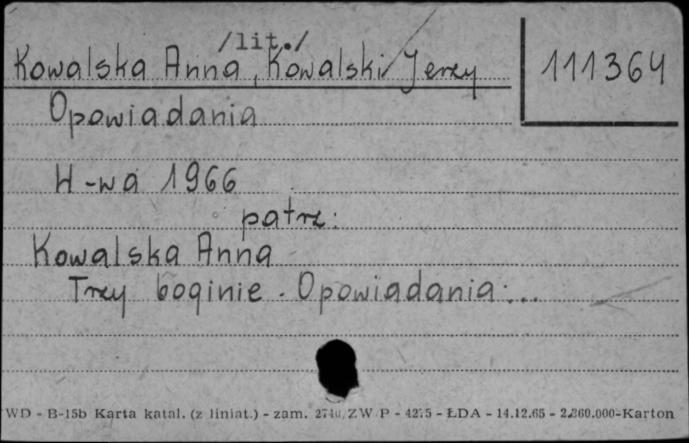 /lit./
Kowalska Anna, Kowalski Jerzy
111364
Opowiadania
W-wa 1966
patrz:
Kowalska Anna
Trzy boginie. Opowiadania...
WD - B-15b Karta katal. (z liniat.) - zam. ZW P - 4275 - ŁDA - 14.12.65 - 2.860.000-Karton